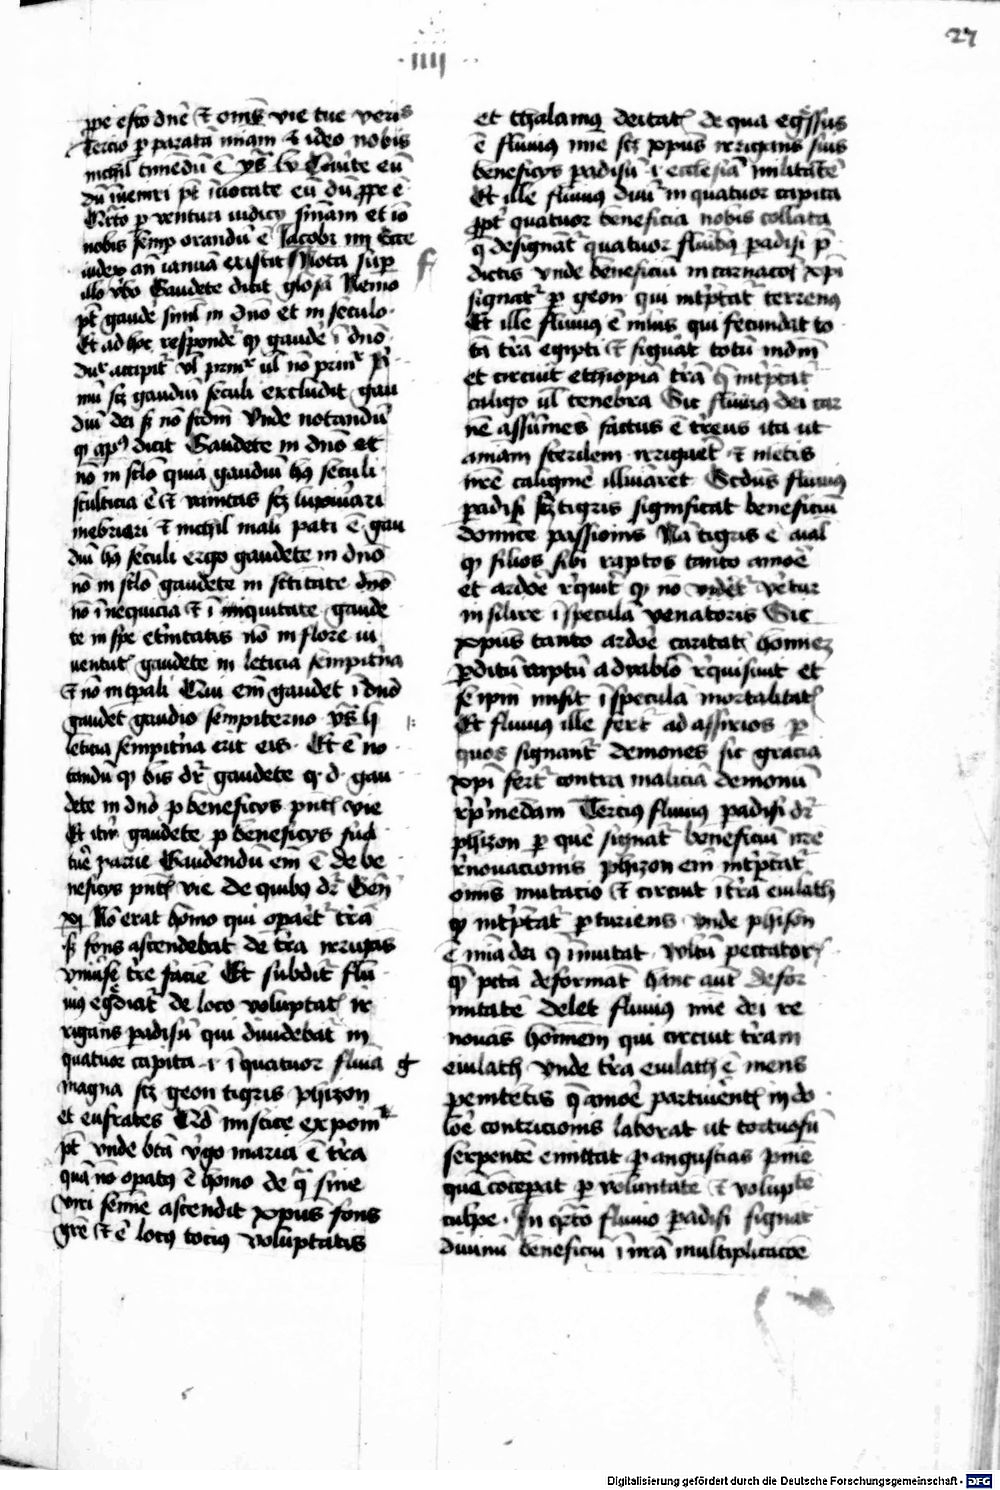 27
·IIII·
ꝓpe esto dn̄e ⁊ om̄s vie tue veri
Tercio ꝓ paratā miam ⁊ ideo nobis
nichil timendū ē ys̄ lv Querite eū
dū inueniri pt̄ īuocate eū dū ꝓpe ē
Q̄rto ꝓ venturi iudicis sn̄iam et iō
nobis semꝑ orandū ē Jacobi iiij Ecce
iudex an̄ ianuā existit Nota suꝑ
illo v̄bo Gaudete dicit glosa Nemo
pt̄ gaudē simul in dn̄o et in seculo
Et ad hoc respondet̄ qꝫ gaudē ī dn̄o
mū scꝫ gaudiū seculi excludit gau
diū dei sꝫ nō scdm̄ Vnde notandū
qꝫ apl̄s dicit Gaudete in dn̄o et
nō in sclō quia gaudiū hꝰ seculi
stulticia ē ⁊ vanitas scꝫ luxuriari
inebriari ⁊ nichil mali pati ē gau
diū hꝰ seculi ergo gaudete in dn̄o
nō in sclō gaudete in sc̄titate dn̄o
nō ī nequicia ⁊ ī iniquitate gaude
te in spe et̄nitatis nō in flore iu
uentutꝭ gaudete in leticia sempit̄na
⁊ nō int̄pali Qui em̄ gaudet ī dn̄o
gaudet gaudio sempiterno ys̄ lj
leticia sempit̄na erit eis Et ē no
tandū qꝫ bis dr̄ gaudete q. d. gau
dete in dn̄o ꝓ beneficijs pn̄tꝭ vie
Et itm̄ gaudete ꝓ beneficijs fut̄
tur̄ patrie Gaudendū em̄ ē de be
neficijs pn̄tꝭ vie de quibꝰ dr̄ Gen̄
ij Nō erat homo qui opaet̄ t̄rā
sꝫ fons ascendebat de t̄ra irrigās
vniuse t̄re facie Et subdit̄ flu
uiꝰ egdiat̄ de loco voluptatꝭ ir
rigans padisū qui diuidebat̄ in
quatuor capita .i. ī quatuor fluīa
magna scꝫ geon tigris phizon
et eufrates Qd̄ mistice exponi
pt̄ vnde btā v̄go maria ē t̄ra
quā nō opatꝰ ē homo de q̄ sine
viri semine ascendit xpus fons
gr̄e ⁊ ē locꝰ tociꝰ voluptatis
f
g
et thalamꝰ deitatꝭ de qua eg̊ssus
ē fluuiꝰ mie scꝫ xpus irrigans suis
beneficijs padisū .i. ecclesiā militātē
Et ille fluuiꝰ diuiꝰ in quatuor capita
ꝓpt̄ quatuor beneficia nobis collata
q̄ designat̄ quatuor fluibꝰ padisi p̄
dictis vnde beneficiū incarnacoīs xpi
signat̄ ꝑ geon qui int̄ptat̄ terrenꝰ
Et ille fluuiꝰ ē nilus qui fecundat to
tā t̄rā egipti ⁊ signat totū mdm̄
et circuit ethiopiā t̄rā q̄ int̄ptat̄
caligo ul̄ tenebra Sic fluuiꝰ dei car
nē assumēs factus ē t̄renus ita ut
aīam sterilem irrigaret ⁊ mētis
nr̄e caliginē illūiaret Scd̄us fluuiꝰ
padisi scꝫ tigris significat beneficiū
dominice passionis Nā tigris ē aīal
qꝫ filios sibi raptos tanto amoē
et ardoē r̄quirit qꝫ nō videt̄ v̄etur
insilire ī specula venatoris Sic
xpus tanto ardoē caritatꝭ hominē
ꝑditū raptū a dyablo r̄quisiuit et
se ipm̄ misit ī speculā mortalitatꝭ
Et fluuiꝰ ille fert̄ ad assirios ꝑ
quos signant̄ demones sic gracia
xpi fert̄ contra maliciā demonū
rep̄mēdam Tercius fluuiꝰ padisi dr̄
phizon ꝑ quē signat̄ beneficiū nr̄e
r̄nouacionis phizon em̄ int̄ptat̄
oris mutacio ⁊ circuit ī t̄ra euilath
qꝫ int̄ptat̄ ꝑturiens vnde phison
ē mia dei q̄ īmutat vultū peccatorꝭ
qꝫ pctā deformāt hanc aut̄ defor
mitatē delet fluuiꝰ mie dei re
nouās hominem qui circuit t̄ram
euilath vnde t̄ra euilath ē mens
penitētis q̄ amoē parturientꝭ in do
loē contricionis laborat ut tortuosū
serpentē emittat ꝑ angustias pnīe
quē cōcepat ꝑ volūntate ⁊ volupte
culpe. In q̄rto fluuio padisi signat̄
diuinū beneficiū ī nr̄ā multiplicacoē
Digitalisierung gefördert durch die Deutsche Forschungsgemeinschaft - DFG